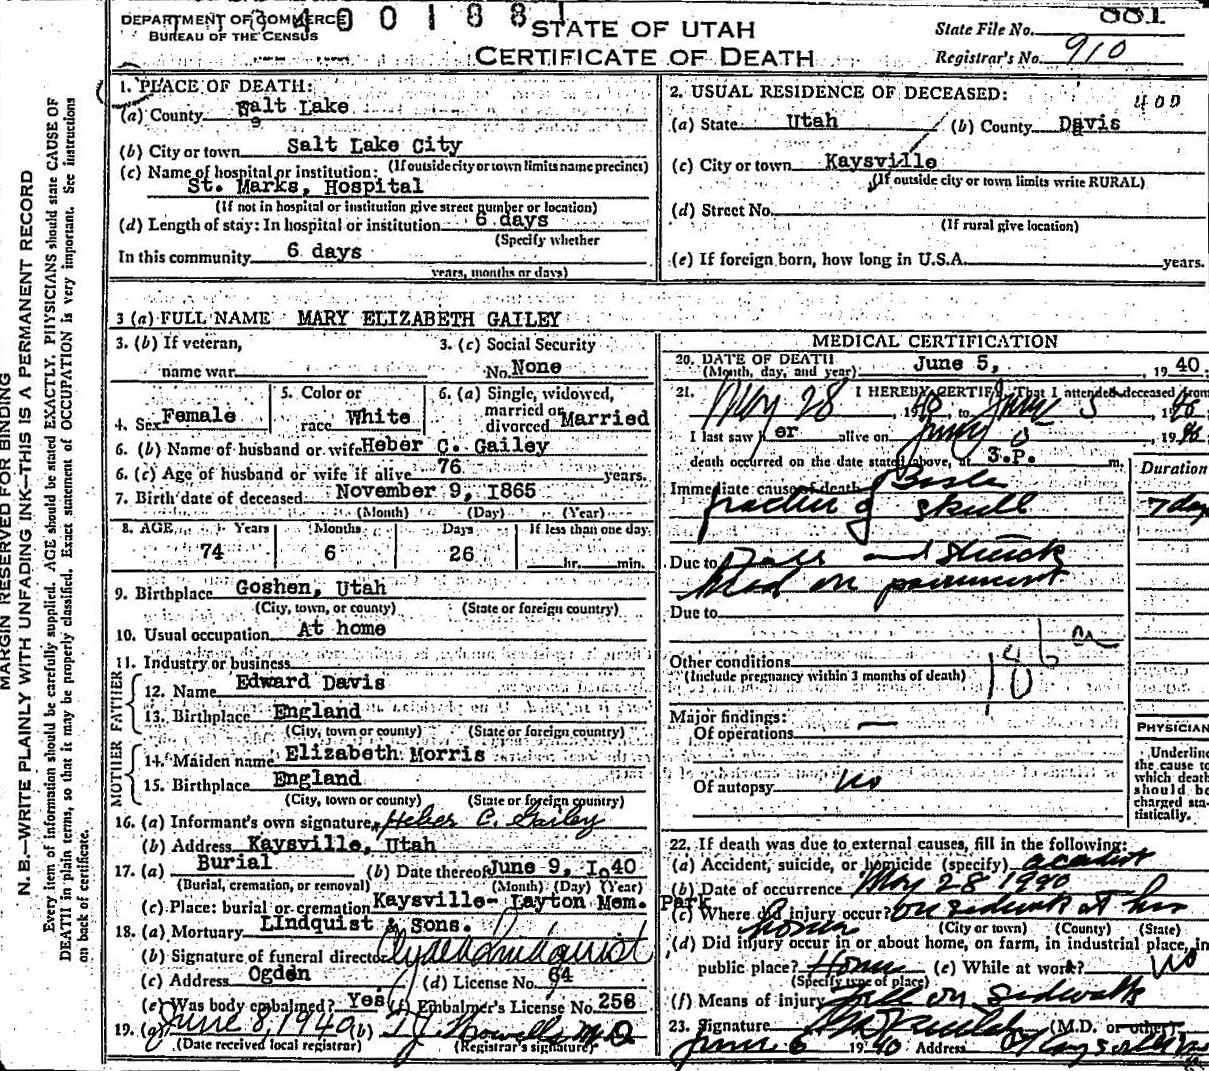 DEPARTMENT OF COMMERCE
BUREAU OF THE CENSUS
400188
STATE OF UTAH
CERTIFICATE OF DEATH
881
State File No.
Registrar's No. 910
1. PLACE OF DEATH:
(a) County Salt Lake
(b) City or town Salt Lake City
(If outside city or town limits name precinct)
(c) Name of hospital or institution:
St. Marks, Hospital
(If not in hospital or institution give street number or location)
(d) Length of stay: In hospital or institution 6 days
(Specify whether
In this community 6 days
years, months or days)
2. USUAL RESIDENCE OF DECEASED:
400
(a) State Utah (b) County Davis
(c) City or town Kaysville
(If outside city or town limits write RURAL)
(d) Street No.
(If rural give location)
(e) If foreign born, how long in U.S.A. years.
3 (a) FULL NAME MARY ELIZABETH GAILEY
3. (b) If veteran,
name war
3. (c) Social Security
No. None
4. Sex Female
5. Color or
race White
6. (a) Single, widowed,
married or
divorced Married
6. (b) Name of husband or wife Heber C. Gailey
6. (c) Age of husband or wife if alive 76 years.
7. Birth date of deceased November 9, 1865
(Month) (Day) (Year)
8. AGE Years Months Days If less than one day
74 6 26 hr. min.
9. Birthplace Goshen, Utah
(City, town, or county) (State or foreign country)
10. Usual occupation At home
11. Industry or business
FATHER
12. Name Edward Davis
13. Birthplace England
(City, town or county) (State or foreign country)
MOTHER
14. Maiden name Elizabeth Morris
15. Birthplace England
(City, town or county) (State or foreign country)
16. (a) Informant's own signature Heber C. Gailey
(b) Address Kaysville, Utah
17. (a) Burial (b) Date thereof June 9, 1940
(Burial, cremation, or removal) (Month) (Day) (Year)
(c) Place: burial or cremation Kaysville- Layton Mem. Park
18. (a) Mortuary Lindquist & Sons.
(b) Signature of funeral director Clyde Lindquist
(c) Address Ogden (d) License No. 64
(e) Was body embalmed? Yes (f) Embalmer's License No. 256
19. (a) June 8, 1940 (b) M.D.
(Date received local registrar) (Registrar's signature)
MEDICAL CERTIFICATION
20. DATE OF DEATH
(Month, day, and year) June 5, , 1940
21. I HEREBY CERTIFY, That I attended deceased from
May 28, 1940, to June 5, 1940
I last saw her alive on June 5, 1940
death occurred on the date stated above, at 3.P. m.
Duration
Immediate cause of death
fracture of skull 7 days
Due to Fall and struck
head on pavement
Due to
Other conditions
(Include pregnancy within 3 months of death)
Major findings:
Of operations —
Of autopsy No
PHYSICIAN
Underline
the cause to
which death
should be
charged sta-
tistically.
22. If death was due to external causes, fill in the following:
(a) Accident, suicide, or homicide (specify) accident
(b) Date of occurrence May 28 1940
(c) Where did injury occur? on sidewalk at her
home (City or town) (County) (State)
(d) Did injury occur in or about home, on farm, in industrial place, in
public place? Home (e) While at work? No
(Specify type of place)
(f) Means of injury fell on sidewalk
23. Signature (M.D. or other)
June 6 1940 Address Kaysville
MARGIN RESERVED FOR BINDING
N. B.—WRITE PLAINLY WITH UNFADING INK—THIS IS A PERMANENT RECORD
Every item of information should be carefully supplied. AGE should be stated EXACTLY. PHYSICIANS should state CAUSE OF
DEATH in plain terms, so that it may be properly classified. Exact statement of OCCUPATION is very important. See instructions
on back of certificate.